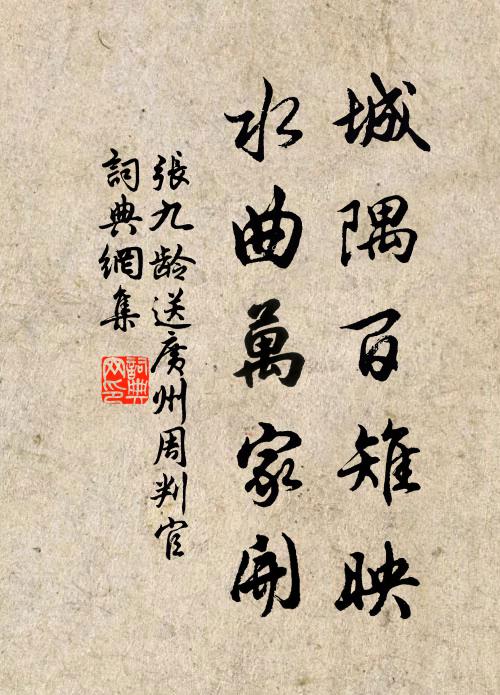 城隅百雉映
水曲萬家開
張九龄送廣州周判官
詞典網集
詞典
网印